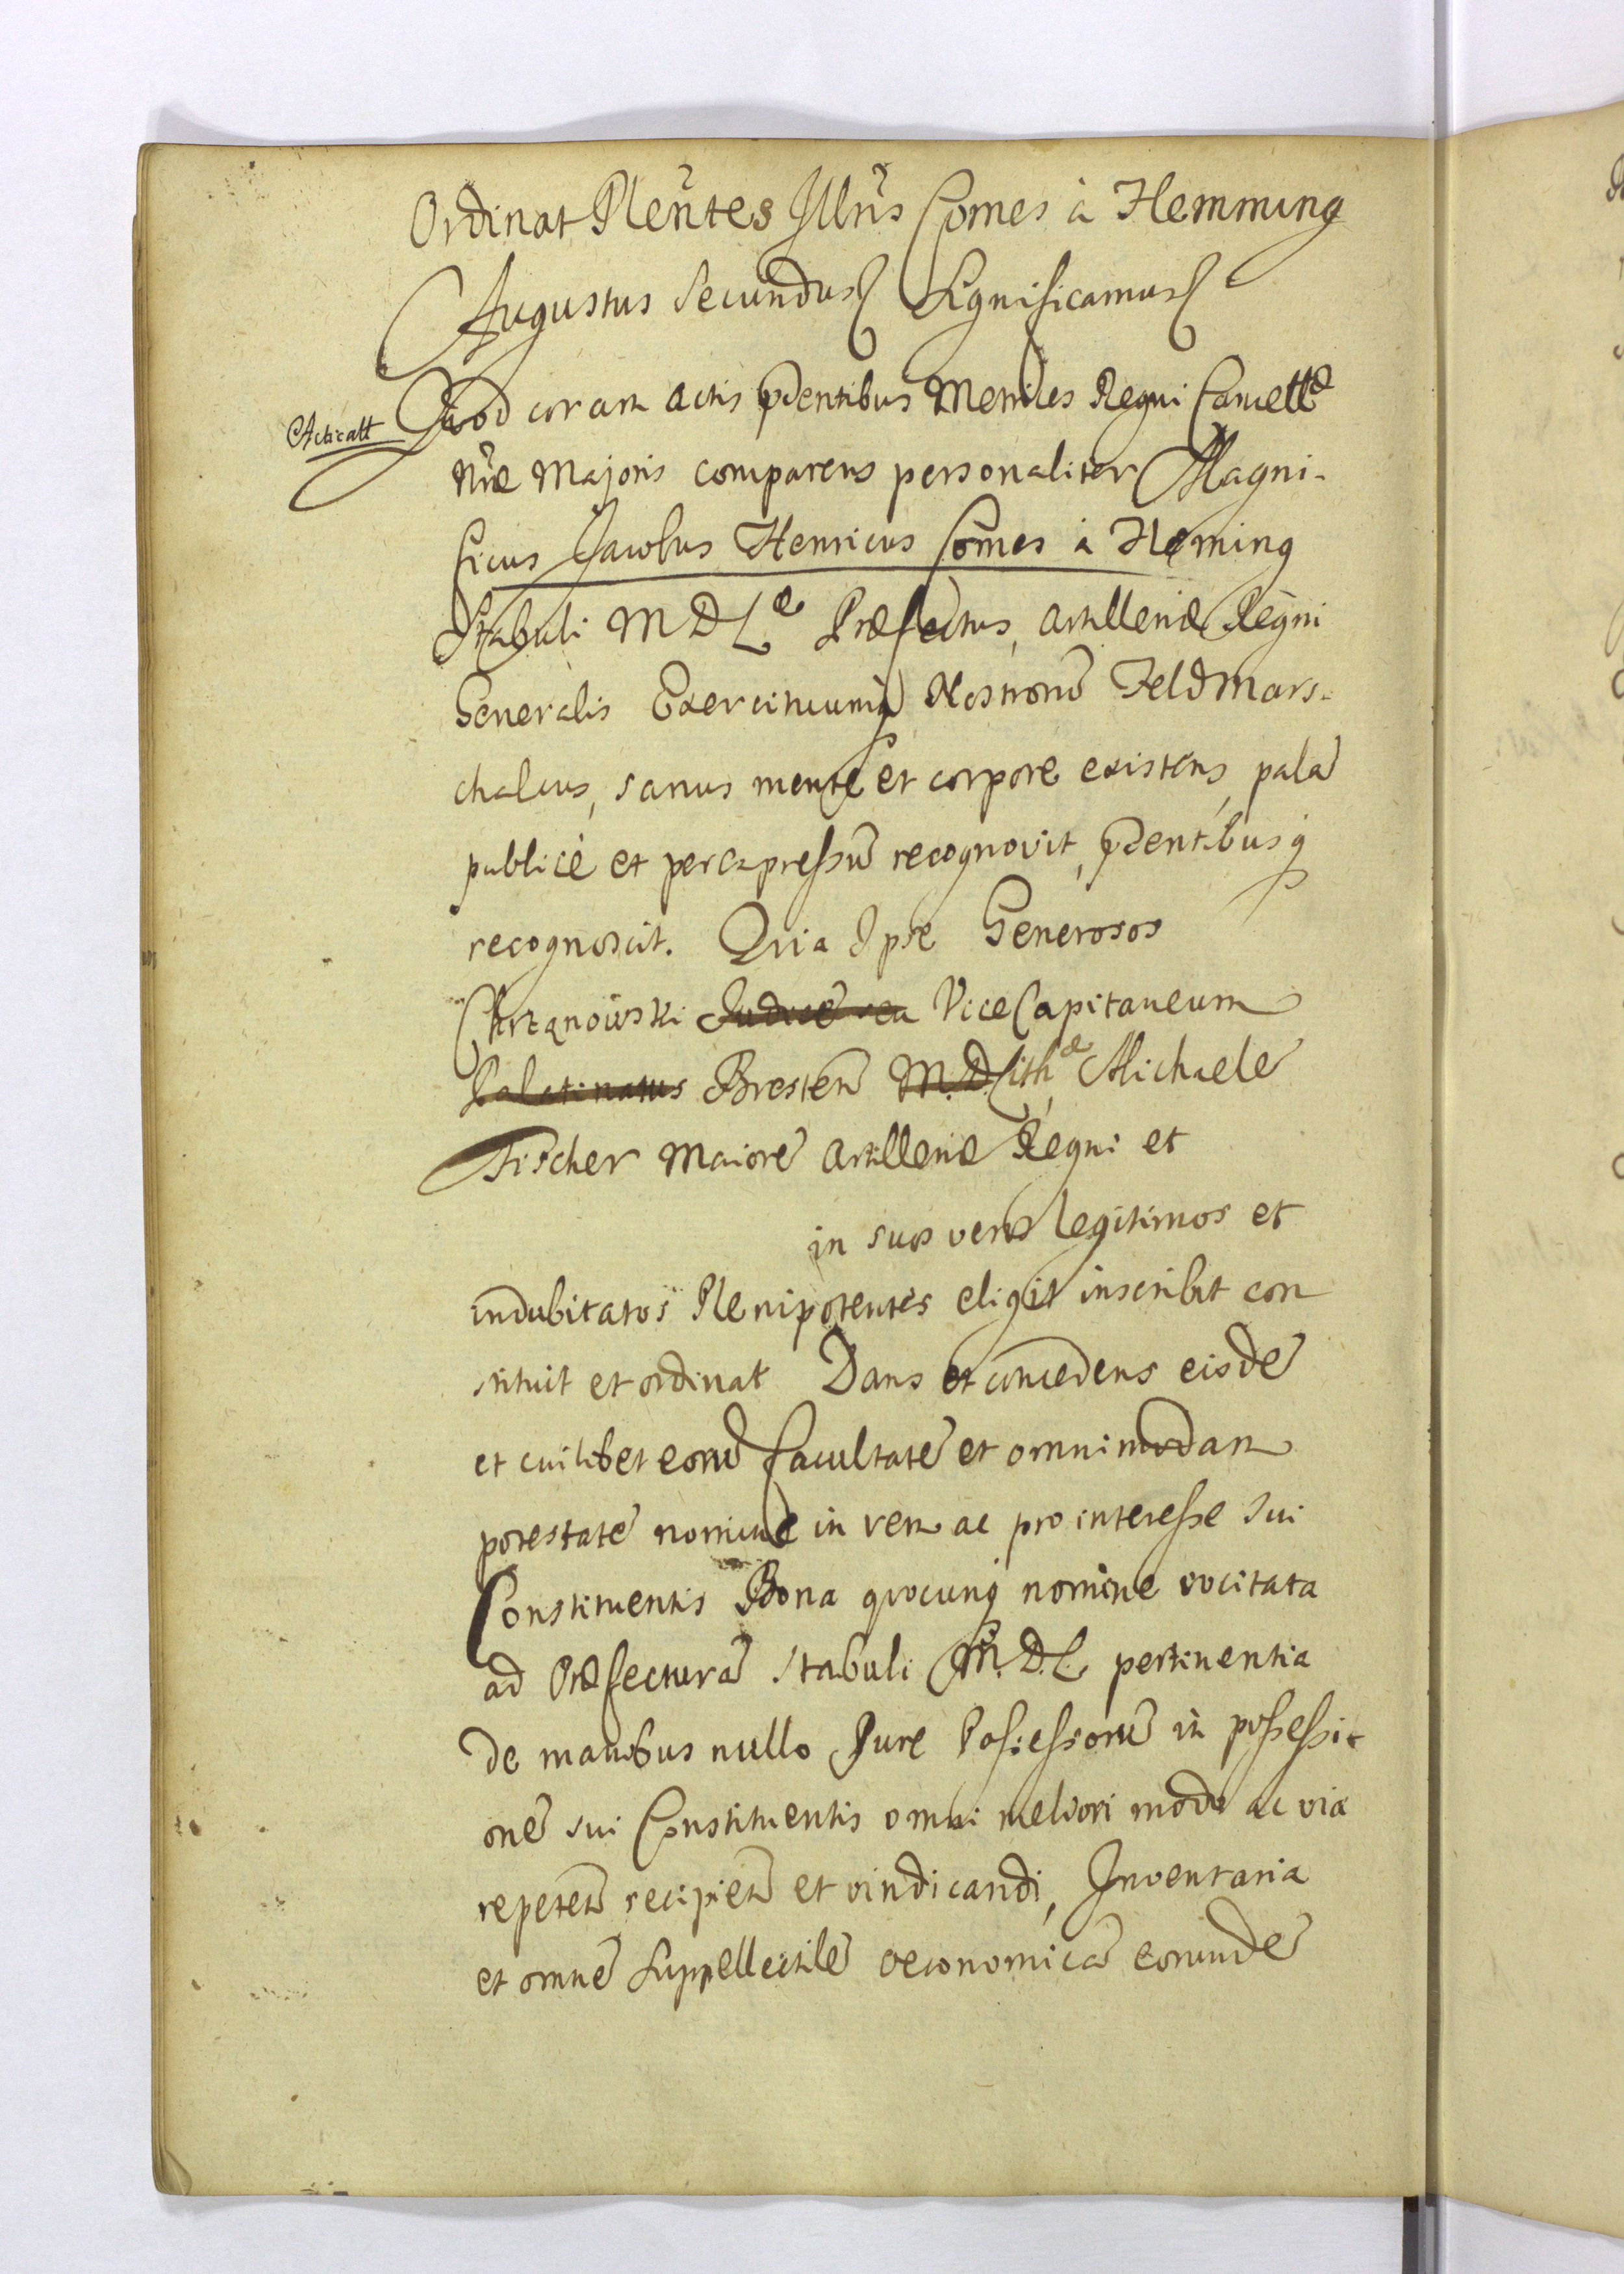 Ordinat Pleñtes Illr̃is Comes à Flemming
Augustus Secundus Significamus
Acticatt
Quod coram actis p̃dentibus Metrices Regni Cancellæ
Nr̃æ Majoris comparens personaliter Magni-
ficus Jacobus Henricus Comes à Fleming
Stabuli M D Læ Præfectus, Artilleriæ Regni
Generalis Exercituumq̃ Nostrorũ Feldmars-
chalcus, sanus mente et corpore existens, palã
publicè et per expressũ recognovit, p̃dentibusq̃
recognoscit. Quia Ipse Generosos
Chrzanowski Judicẽ seu ViceCapitaneum
Palatinatus Bresteñ M. D. Lithæ, Michaelẽ
Fischer Maiorẽ Artilleriæ Regni et
in suos veros legitimos et
indubitatos Plenipotentes eligit inscribit con
stituit et ordinat Dans et concedens eisdẽ
et cuilibet eorũ facultatẽ et omnimodam
potestatẽ nomine in rem ac pro interesse sui
Constituentis Bona quocunq̃ nomine vocitata
ad Præfecturã Stabuli M. D. L. pertinentia
de manibus nullo Jure Possessorũ in possessi-
onẽ sui Constituentis omni meliori modo ac via
repeteñ recipieñ et vindicandi, Inventaria
et omnẽ Suppellectilẽ oeconomicã eorundẽ